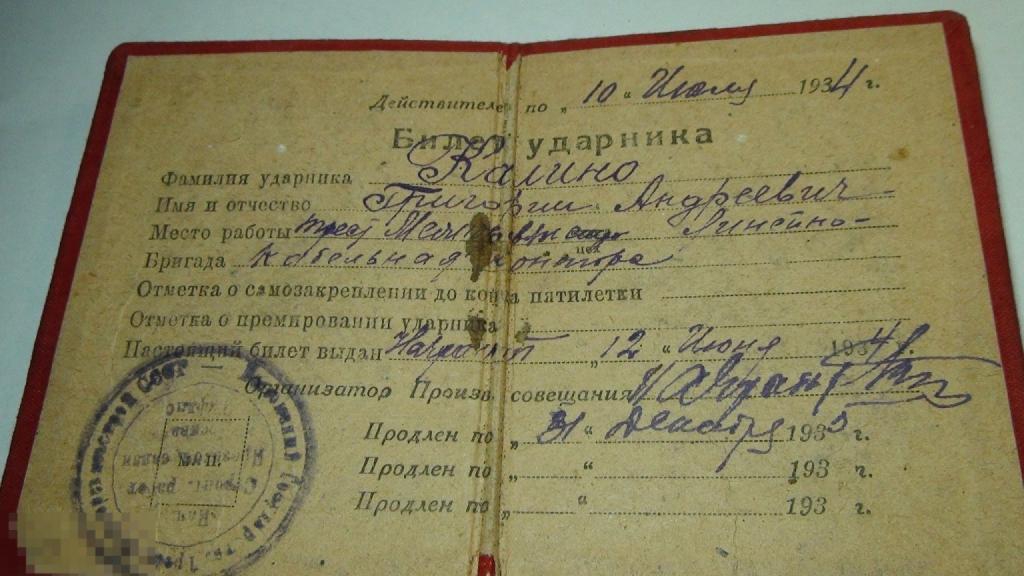 Действителен по „ 10 “ Июля 1934 г.
Билет ударника
Фамилия ударника Калино
Имя и отчество Григорий Андреевич
Место работы трест Линейно-
Бригада Кабельная контора цех
Отметка о самозакреплении до конца пятилетки
Отметка о премировании ударника
Настоящий билет выдан „ 12 “ Июня 1934 г.
Организатор Произв. совещания
Продлен по „ 31 “ Декабря 1935 г.
Продлен по „ “ 193 г.
Продлен по „ “ 193 г.
М. П.